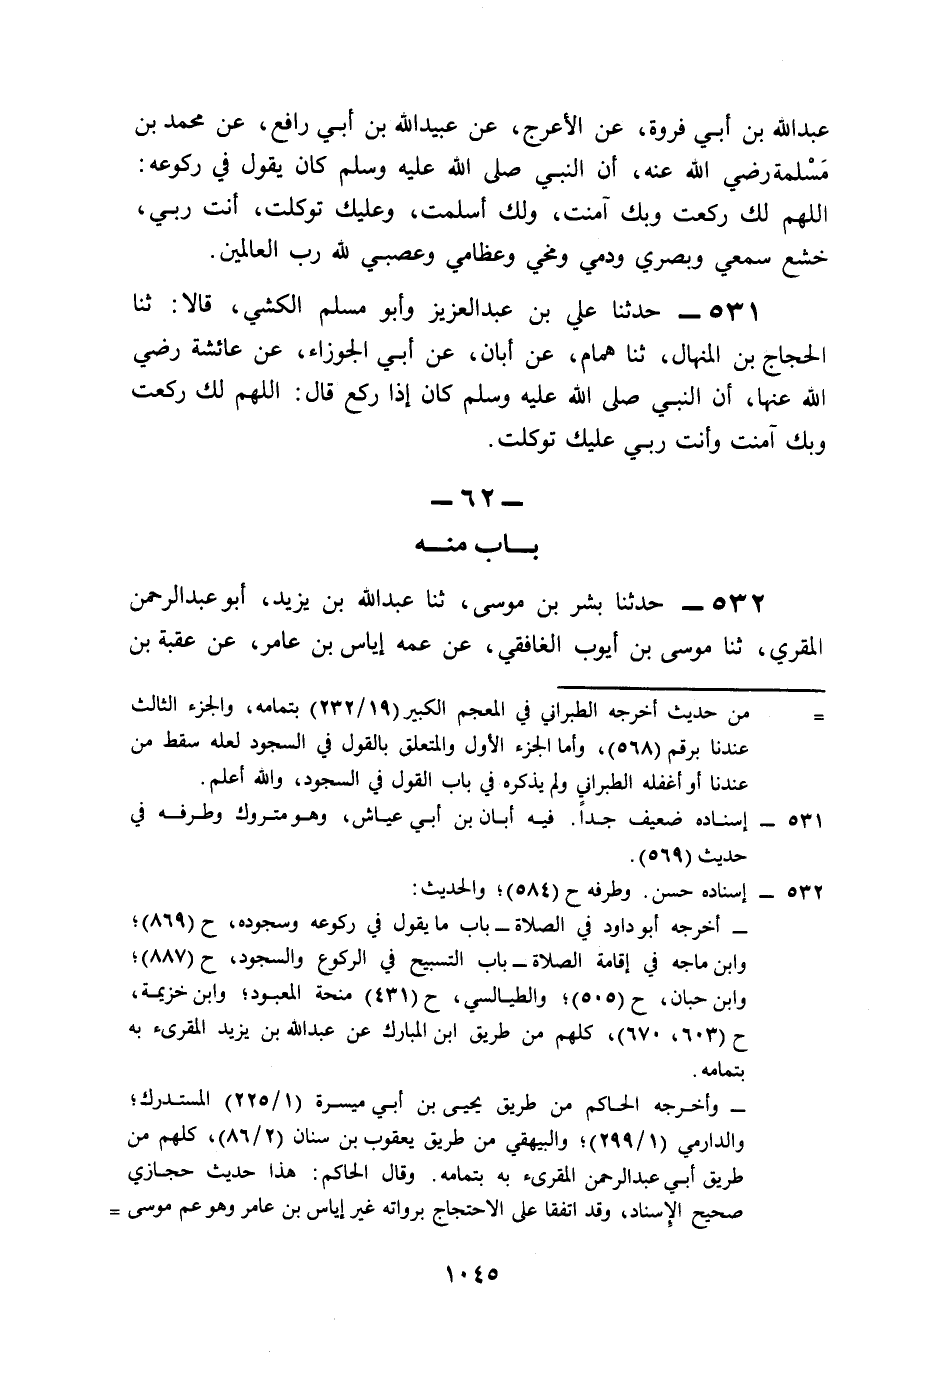 عبدالله بن أبي فروة، عن الأعرج، عن عبيدالله بن أبي رافع، عن محمد بن
مَسْلمة رضي الله عنه، أن النبي صلى الله عليه وسلم كان يقول في ركوعه:
اللهم لك ركعت وبك آمنت، ولك أسلمت، وعليك توكلت، أنت ربي،
خشع سمعي وبصري ودمي ومخي وعظامي وعصبي لله رب العالمين.
٥٣١ ـ حدثنا علي بن عبدالعزيز وأبو مسلم الكشي، قالا: ثنا
الحجاج بن المنهال، ثنا همام، عن أبان، عن أبي الجوزاء، عن عائشة رضي
الله عنها، أن النبي صلى الله عليه وسلم كان إذا ركع قال: اللهم لك ركعت
وبك آمنت وأنت ربي عليك توكلت.
ـ ٦٢ ـ
باب منه
٥٣٢ ـ حدثنا بشر بن موسى، ثنا عبدالله بن يزيد، أبو عبدالرحمن
المقري، ثنا موسى بن أيوب الغافقي، عن عمه إياس بن عامر، عن عقبة بن
= من حديث أخرجه الطبراني في المعجم الكبير (٢٣٢/١٩) بتمامه، والجزء الثالث
عندنا برقم (٥٦٨)، وأما الجزء الأول والمتعلق بالقول في السجود لعله سقط من
عندنا أو أغفله الطبراني ولم يذكره في باب القول في السجود، والله أعلم.
٥٣١ ـ إسناده ضعيف جداً. فيه أبان بن أبي عياش، وهو متروك وطرفه في
حديث (٥٦٩).
٥٣٢ ـ إسناده حسن. وطرفه ح (٥٨٤)؛ والحديث:
ـ أخرجه أبو داود في الصلاة ـ باب ما يقول في ركوعه وسجوده، ح (٨٦٩)؛
وابن ماجه في إقامة الصلاة ـ باب التسبيح في الركوع والسجود، ح (٨٨٧)؛
وابن حبان، ح (٥٠٥)؛ والطيالسي، ح (٤٣١) منحة المعبود؛ وابن خزيمة،
ح (٦٠٣، ٦٧٠)، كلهم من طريق ابن المبارك عن عبدالله بن يزيد المقرىء به
بتمامه.
ـ وأخرجه الحاكم من طريق يحيى بن أبي ميسرة (٢٢٥/١) المستدرك؛
والدارمي (٢٩٩/١)؛ والبيهقي من طريق يعقوب بن سنان (٨٦/٢)، كلهم من
طريق أبي عبدالرحمن المقرىء به بتمامه. وقال الحاكم: هذا حديث حجازي
صحيح الإسناد، وقد اتفقا على الاحتجاج برواته غير إياس بن عامر وهو عم موسى =
١٠٤٥